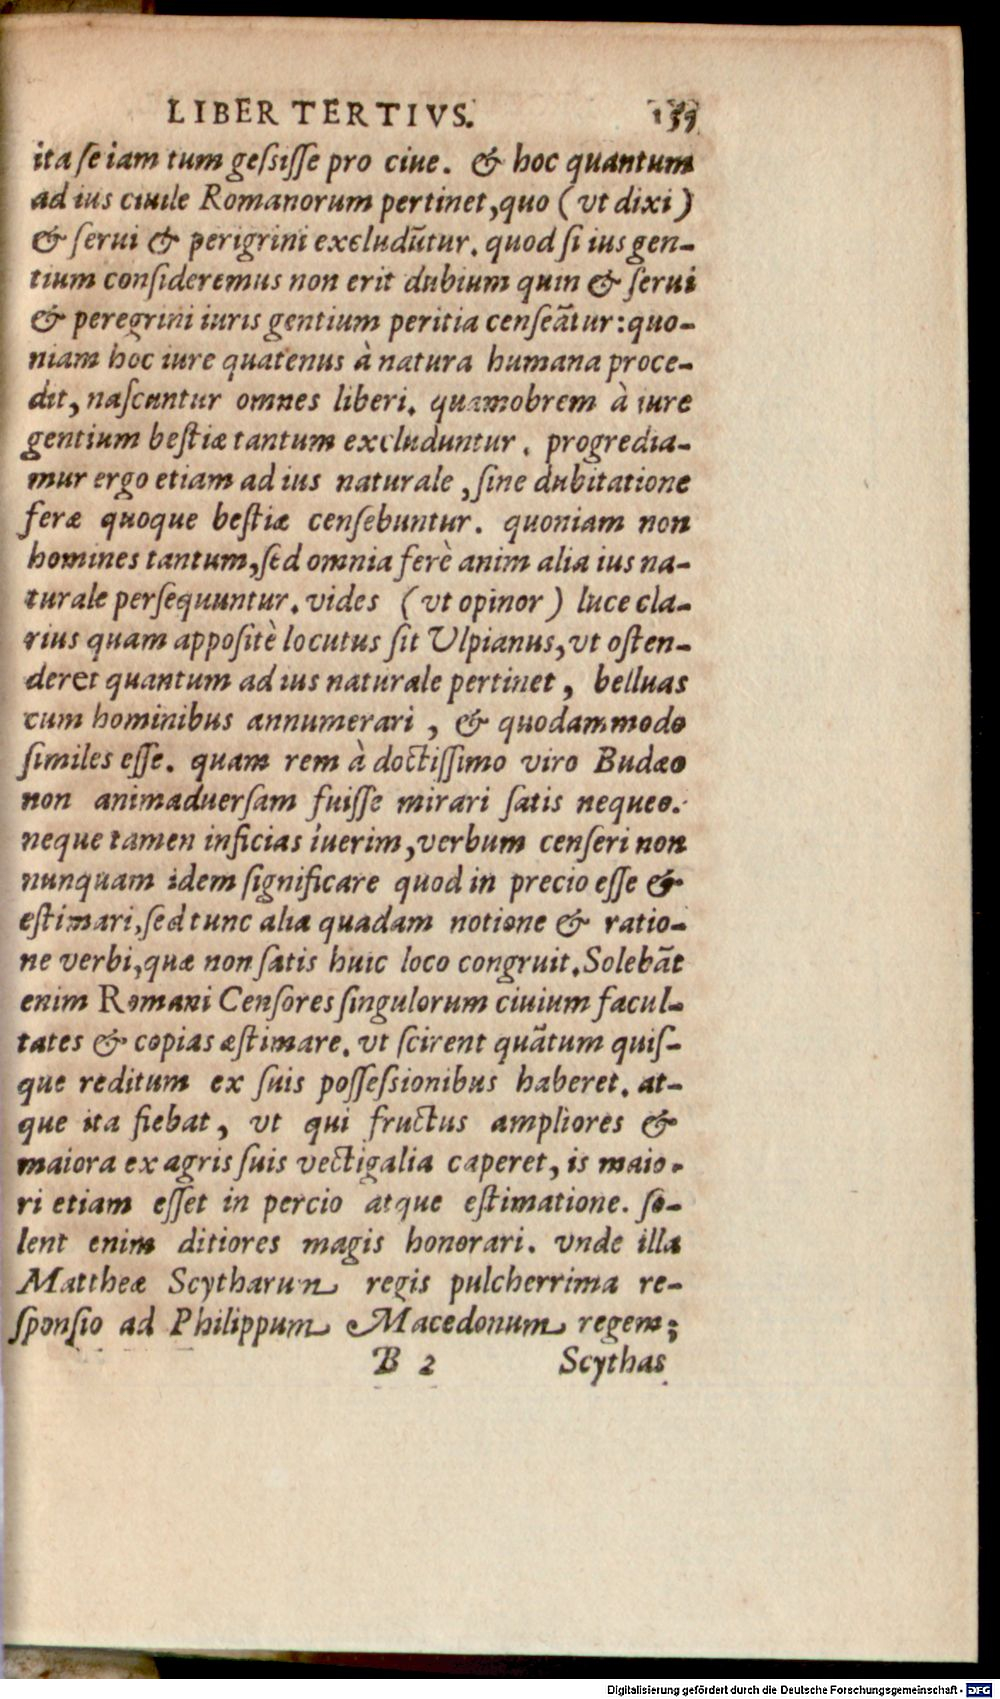 LIBER TERTIVS.
ita se iam tum gessisse pro ciue. & hoc quantum
ad ius ciuile Romanorum pertinet, quo (vt dixi)
& serui & perigrini excludūtur. quod si ius gen-
tium consideremus non erit dubium quin & serui
& peregrini iuris gentium peritia censeātur: quo-
niam hoc iure quatenus à natura humana proce-
dit, nascuntur omnes liberi. quamobrem à iure
gentium bestiæ tantum excluduntur. progredia-
mur ergo etiam ad ius naturale, sine dubitatione
feræ quoque bestiæ censebuntur. quoniam non
homines tantum, sed omnia ferè anim alia ius na-
turale persequuntur. vides (vt opinor) luce cla-
rius quam appositè locutus sit Ulpianus, vt osten-
deret quantum ad ius naturale pertinet, belluas
cum hominibus annumerari, & quodammodo
similes esse. quam rem à doctissimo viro Budæo
non animaduersam fuisse mirari satis nequeo.
neque tamen inficias iuerim, verbum censeri non
nunquam idem significare quod in precio esse &
estimari, sed tunc alia quadam notione & ratio-
ne verbi, quæ non satis huic loco congruit. Solebāt
enim Romani Censores singulorum ciuium facul-
tates & copias æstimare. vt scirent quātum quis-
que reditum ex suis possessionibus haberet. at-
que ita fiebat, vt qui fructus ampliores &
maiora ex agris suis vectigalia caperet, is maio-
ri etiam esset in percio atque estimatione. so-
lent enim ditiores magis honorari. vnde illa
Mattheæ Scytharum regis pulcherrima re-
sponsio ad Philippum Macedonum regem;
B 2 Scythas
Digitalisierung gefördert durch die Deutsche Forschungsgemeinschaft - DFG